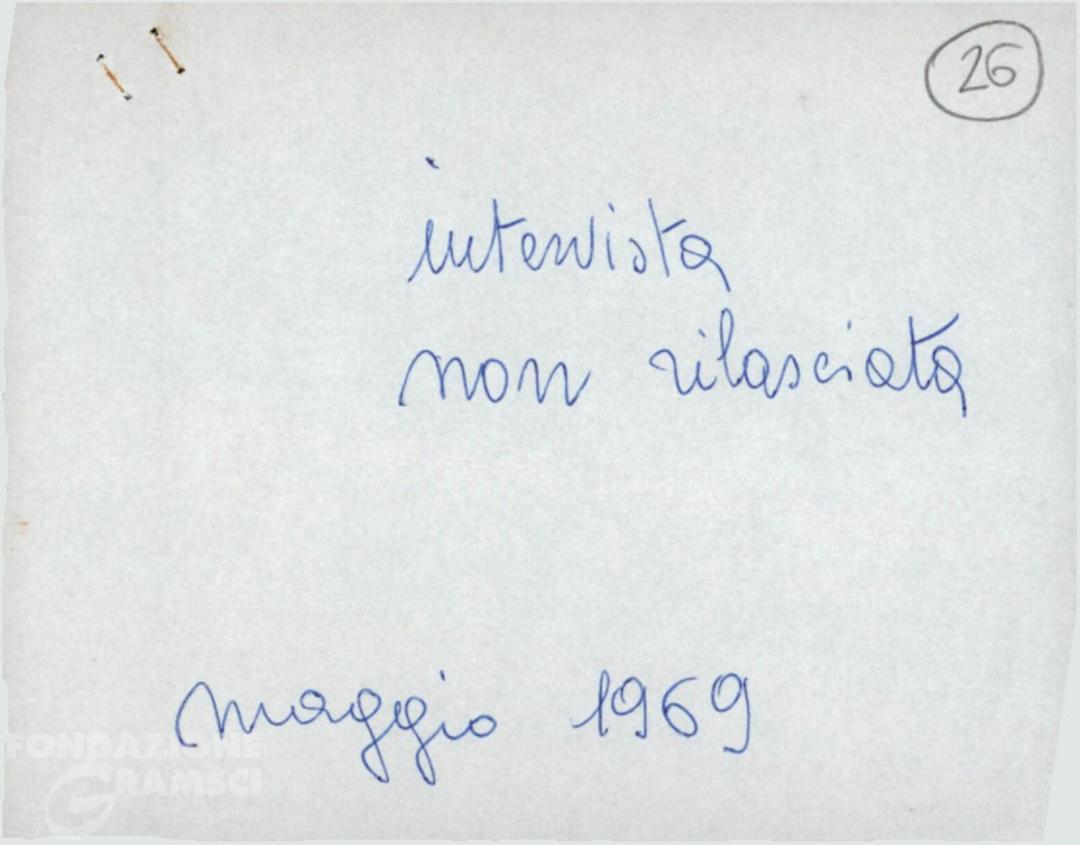 26
intervista
non rilasciata
maggio 1969
FONDAZIONE
GRAMSCI
onlus